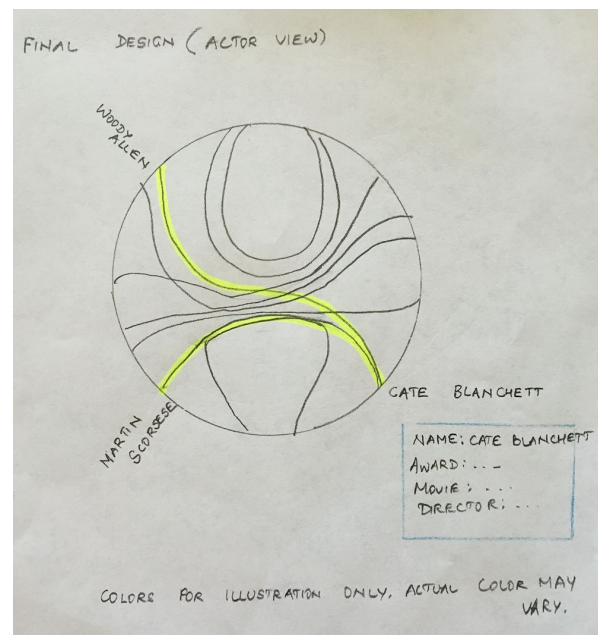 FINAL DESIGN (ACTOR VIEW)
WOODY
ALLEN
CATE BLANCHETT
MARTIN
SCORSESE
NAME: CATE BLANCHETT
AWARD: ...
MOVIE: ...
DIRECTOR: ...
COLORS FOR ILLUSTRATION ONLY. ACTUAL COLOR MAY
VARY.